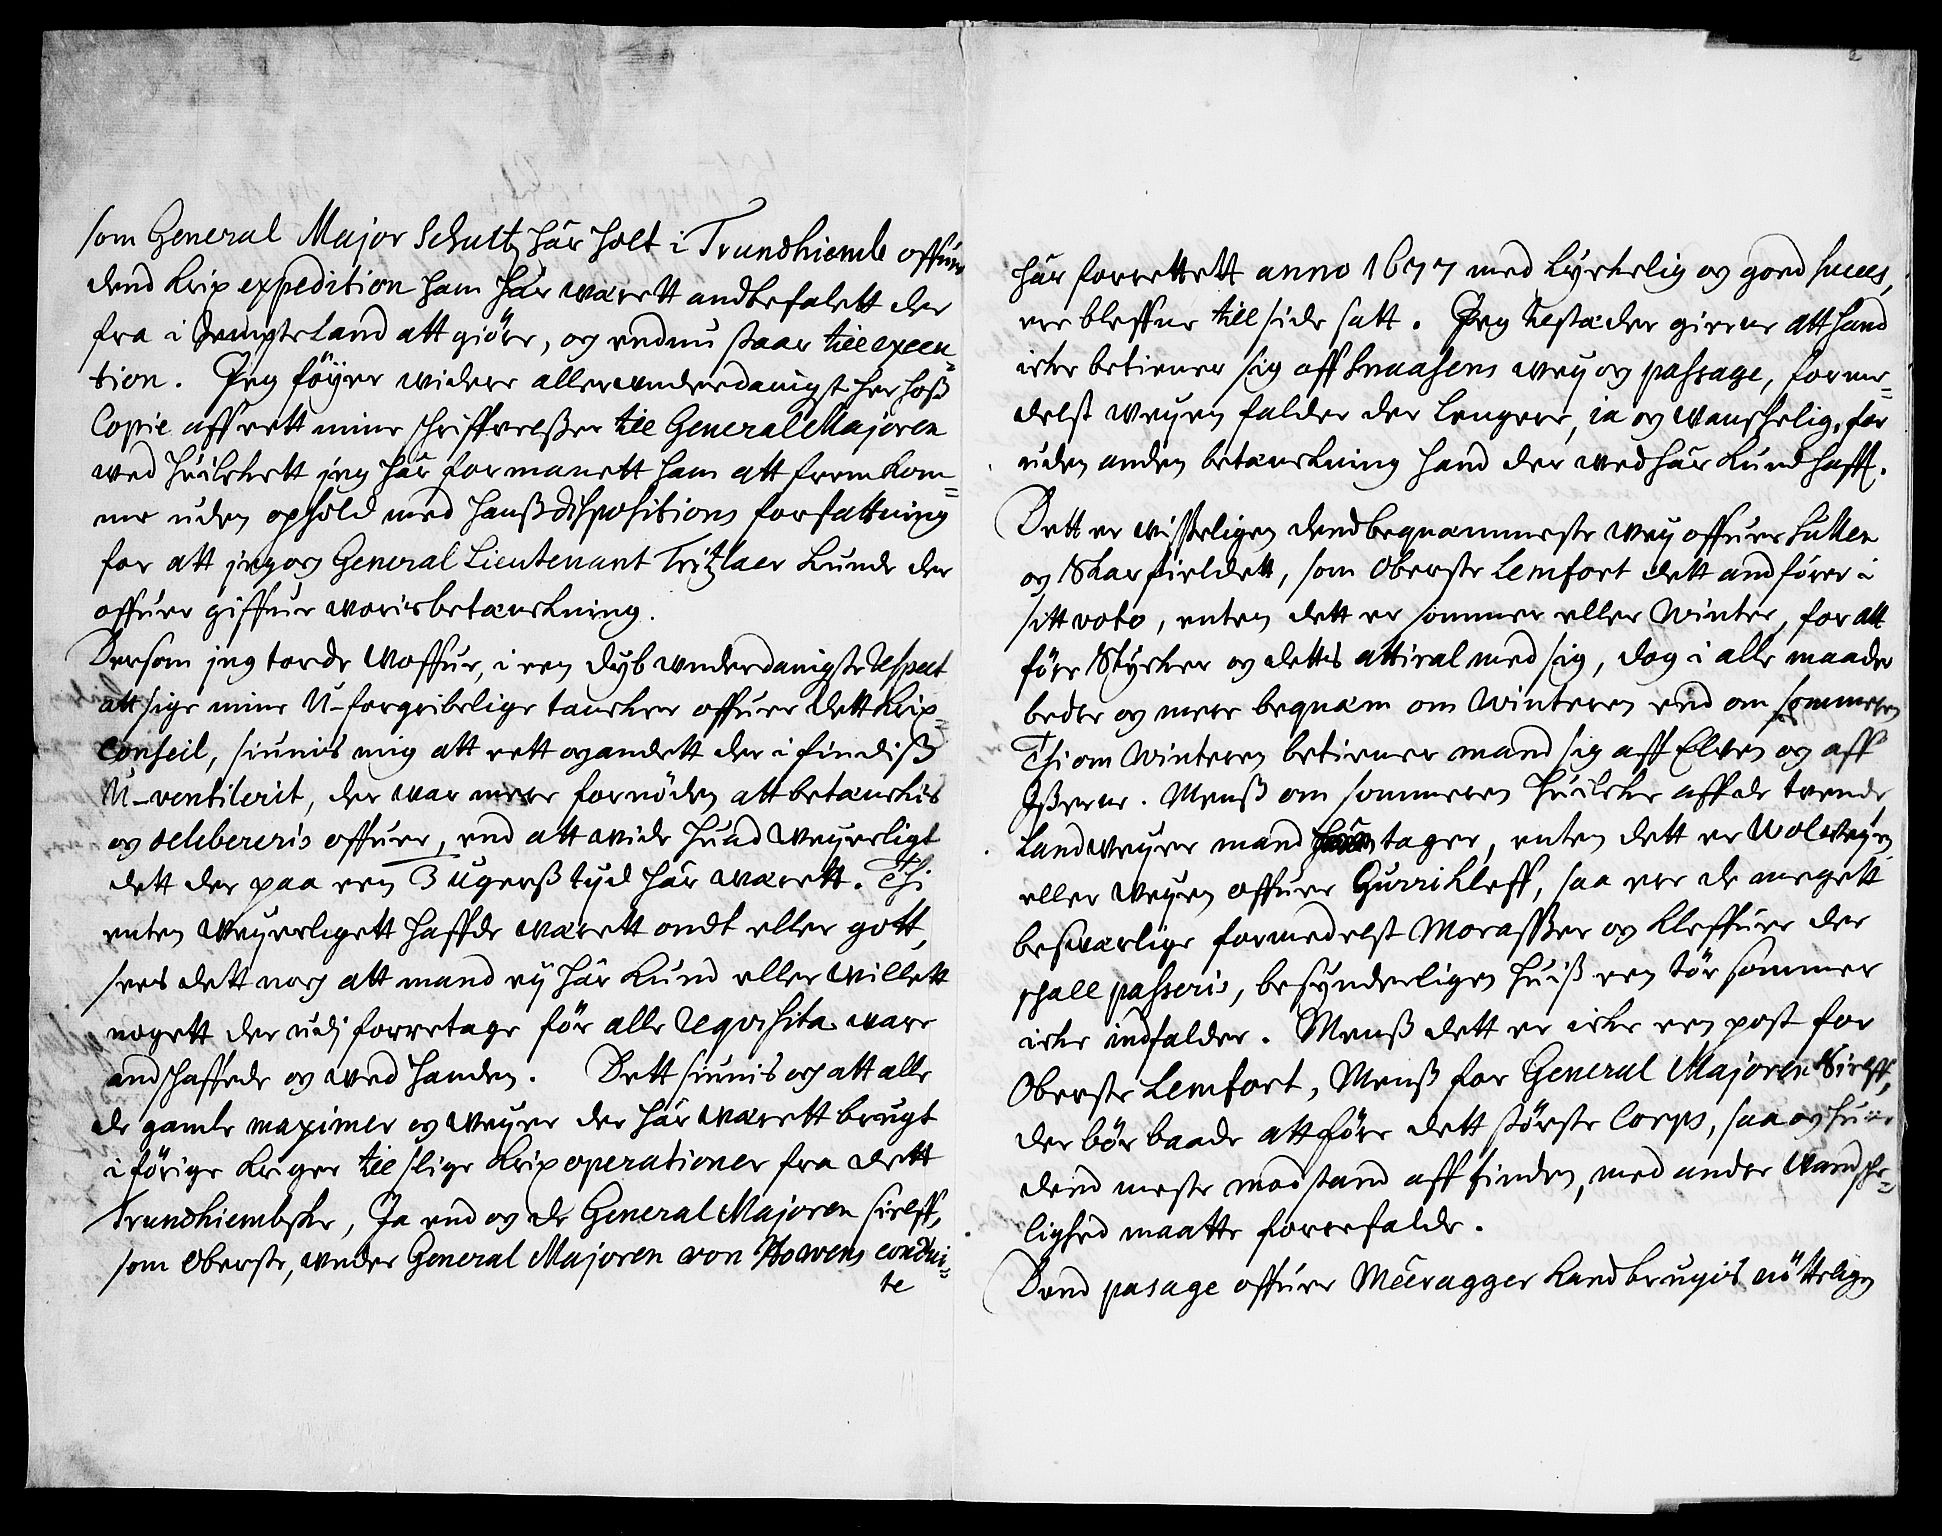 som General Major Schultz här holt i Trundhiemb offuer
dend Krix expedition ham här warett andbefalett der
fra i Jempteland att giöre, og endnu staar till execu=
tion. Jeg föyer widere allerwnderdanigst her hoß
Copie aff ett mine schriffvelßer till General Majoren
wed huilckett jeg här formanett ham att fremkom=
me uden ophold med hanß dispositions forfattning
for att jeg og General Lieutenant Tritzlaer kunde der
offuer giffue woris betænckning.
Dersom jeg torde woffue, i een dyb wnderdanigste Respect
att sige mine U-forgribelige tancker offuer dett Krix=
Conseil, siunis mig att ett og andett der i findiß
U-ventilerit, der war mere fornöden att betænckis
og delibereris offuer, end att wide huad weyerligt
dett der paa een 3 ugerß tyd här warett. Thi
enten weyerligett haffde warett ondt eller gott,
sees dett nog att mand ey här kund eller willett
nogett der udj forretage för alle Requisita ware
andschaffede og wed handen. Dett siunis og att alle
de gamle maximer og weyer der här warett brugt
i förige kriger till slige Krix operationer fra dett
Trundhiembske, Ja end og de General Majoren sielff,
som Oberste, wnder General Majoren von Howens condui=
te
här forrettett anno 1677 med lyckelig og goed succes,
ere bleffne till side satt. Jeg tilstæder gierne att hand
icke betiener sig aff Snaasens wey og passage, forme=
delst weyen falder der lengere, ia og wanschelig, for
uden anden betænckning hand der wed här kund haff.
Dett er wisseligen dend bequemmeste wey offuer Sullen
og Skarfieldett, som Oberste Lemfort dett andförer i
sitt voto, enten dett er sommer eller Winter, for att
före Stycker og dettis attiral med sig, dog i alle maader
bedre og mere bequæm om Winteren end om sommeren
Thi om Winteren betiener mand sig aff Elven og aff
Ißerne. Menß om sommeren huilcke aff de trende
Landweyer mand tager, enten dett er Wolweyen
eller weyen offuer Gurri Kleff, saa ere de megett
beswærlige formedelst Moraßer og Kleffuer der
schall passeris, besynderligen huiß een tör sommer
icke indfalder. Menß dett er icke een post for
Oberste Lemfort, Menß for General Majoren Sielff,
der bör baade att före dett störste Corps, saa og huor
dend meste modstand aff finden, med ander wansche=
lighed maatte forrefalde.
Dend pasage offuer Meeragger kand brugis nötteligen